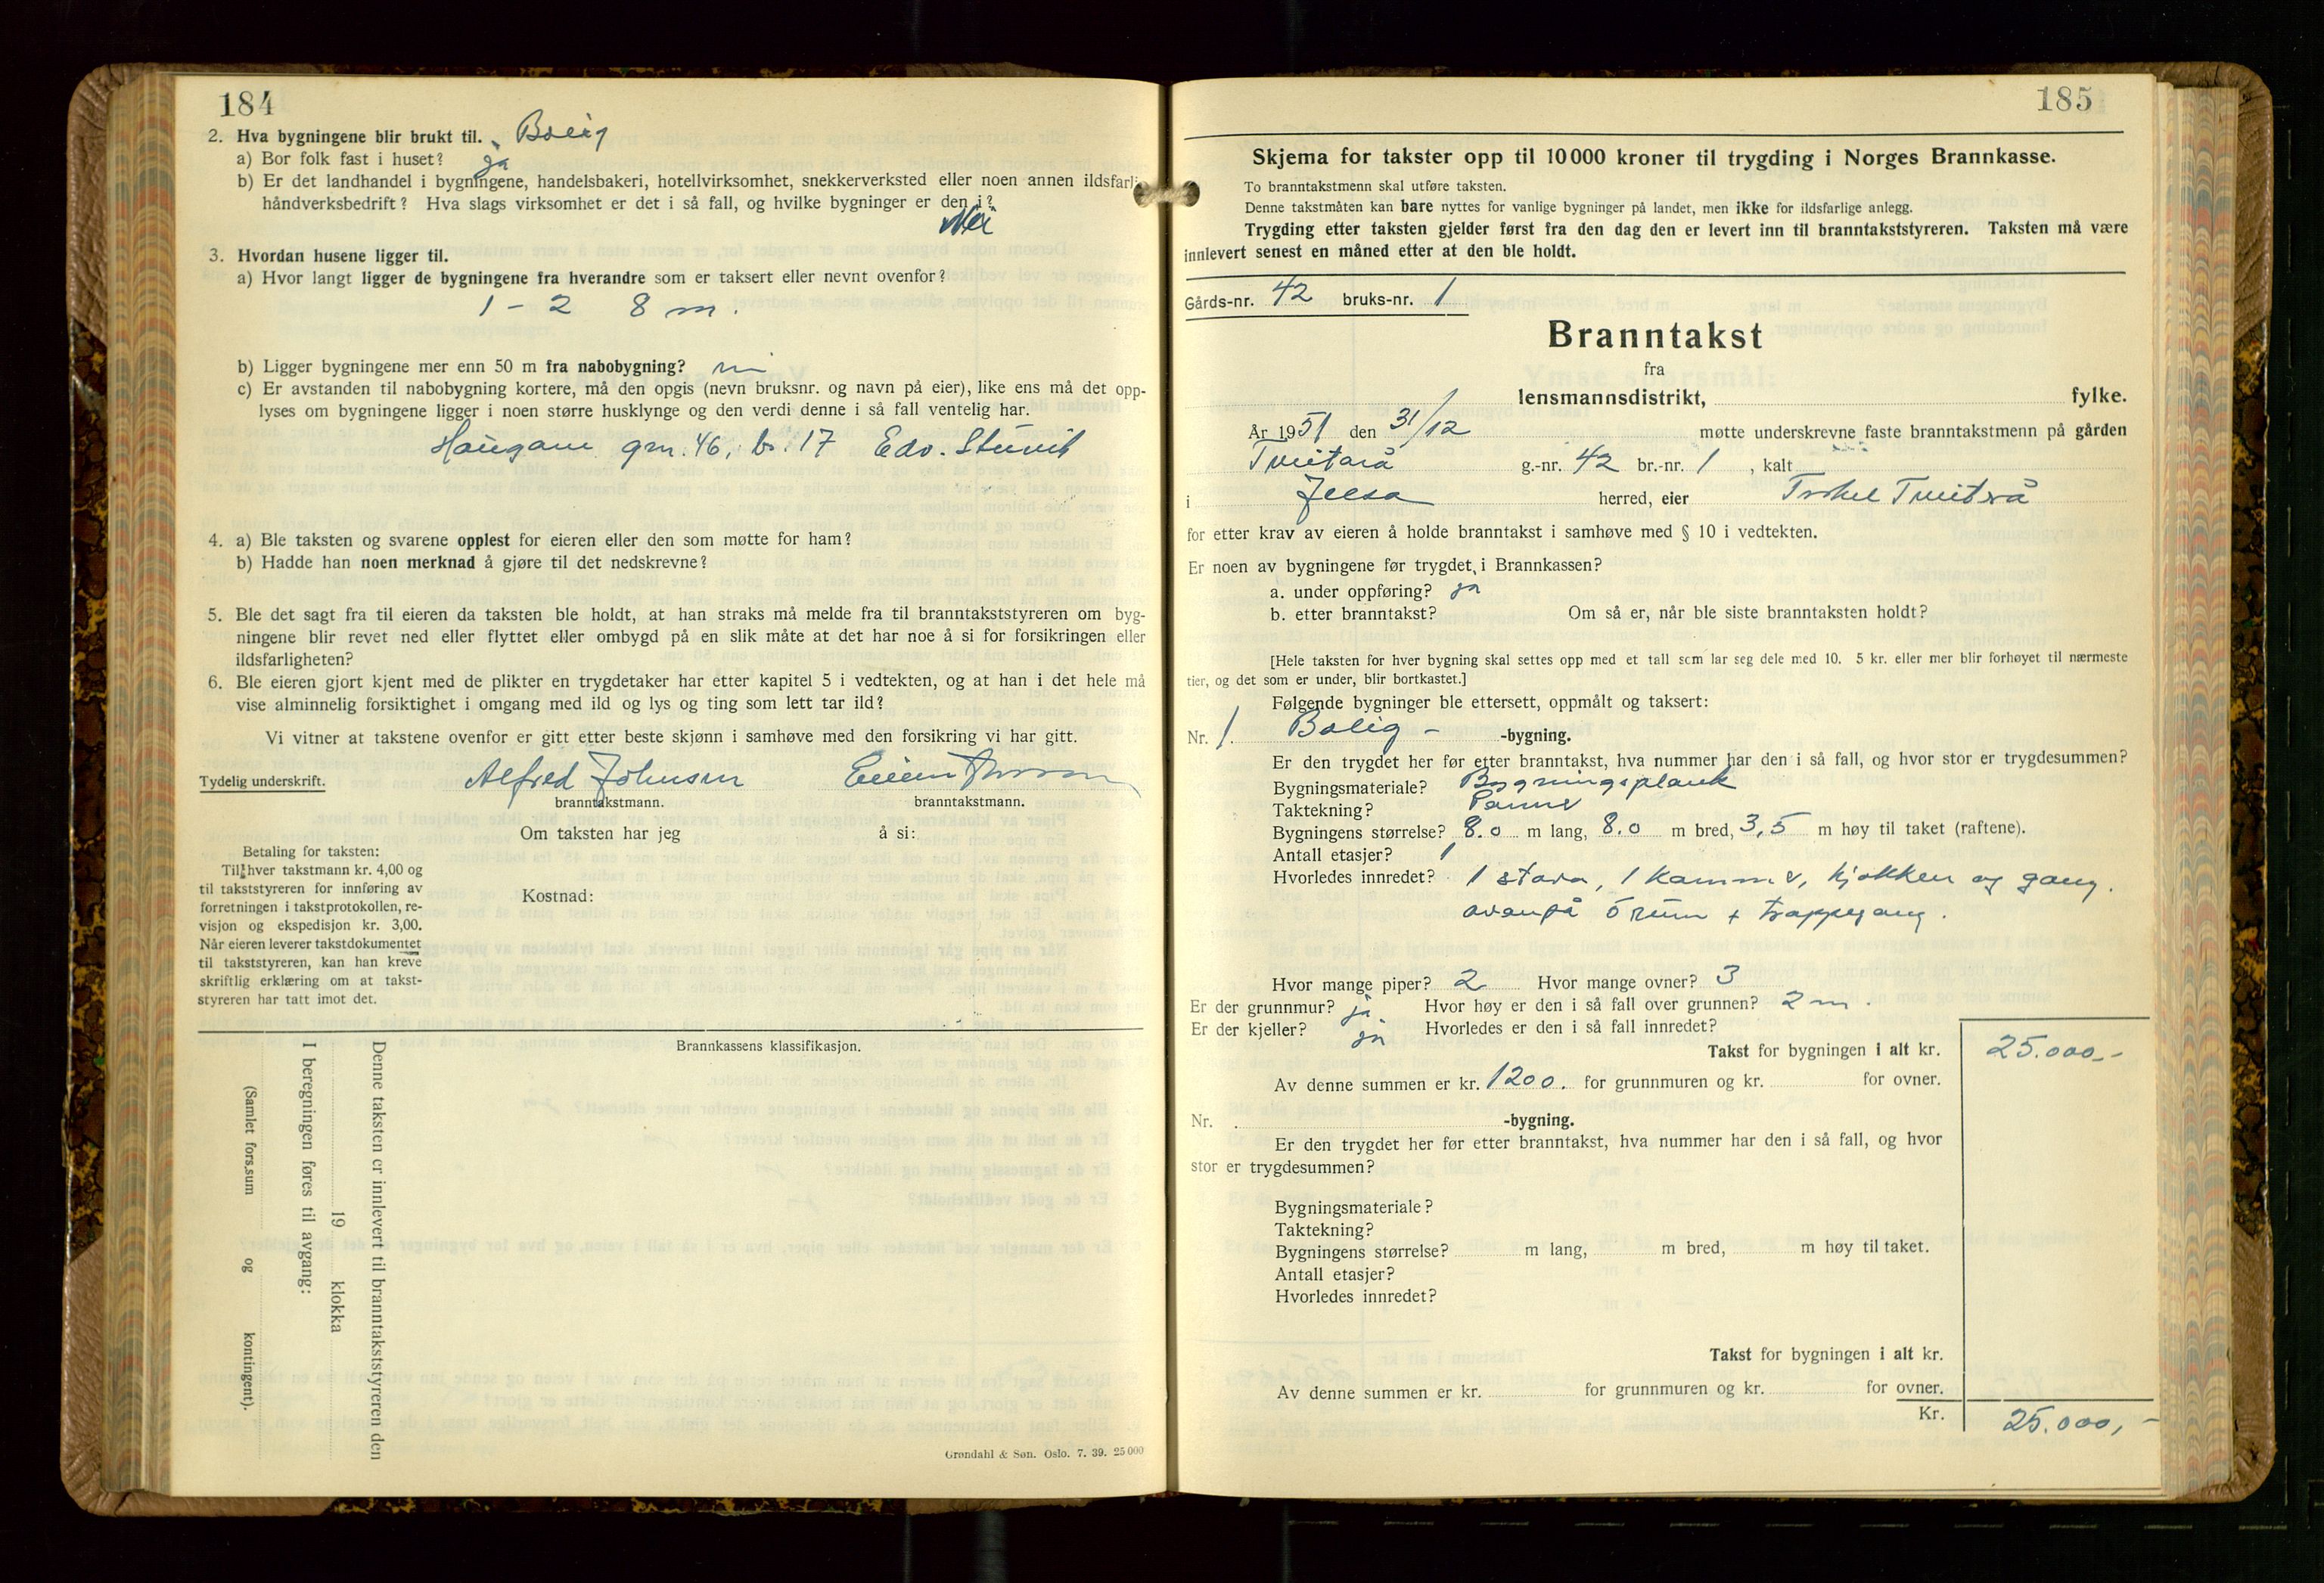 184
2. Hva bygningene blir brukt til. Bolig
a) Bor folk fast i huset? ja
b) Er det landhandel i bygningene, handelsbakeri, hotellvirksomhet, snekkerverksted eller noen annen ildsfarlig
håndverksbedrift? Hva slags virksomhet er det i så fall, og hvilke bygninger er den i?
Nei
3. Hvordan husene ligger til.
a) Hvor langt ligger de bygningene fra hverandre som er taksert eller nevnt ovenfor?
1 - 2 8 m.
b) Ligger bygningene mer enn 50 m fra nabobygning?
c) Er avstanden til nabobygning kortere, må den opgis (nevn bruksnr. og navn på eier), like ens må det opp-
lyses om bygningene ligger i noen større husklynge og den verdi denne i så fall ventelig har.
Haugane gnr. 46, br. 17 Edv.
4. a) Ble taksten og svarene opplest for eieren eller den som møtte for ham?
b) Hadde han noen merknad å gjøre til det nedskrevne?
5. Ble det sagt fra til eieren da taksten ble holdt, at han straks må melde fra til branntakststyreren om byg-
ningene blir revet ned eller flyttet eller ombygd på en slik måte at det har noe å si for forsikringen eller
ildsfarligheten?
6. Ble eieren gjort kjent med de plikter en trygdetaker har etter kapitel 5 i vedtekten, og at han i det hele må
vise alminnelig forsiktighet i omgang med ild og lys og ting som lett tar ild?
Vi vitner at takstene ovenfor er gitt etter beste skjønn i samhøve med den forsikring vi har gitt.
Tydelig underskrift. Alfred Johnsen
branntakstmann. branntakstmann.
Om taksten har jeg å si:
Betaling for taksten:
Til hver takstmann kr. 4,00 og
til takststyreren for innføring av
forretningen i takstprotokollen, re-
visjon og ekspedisjon kr. 3,00.
Når eieren leverer takstdokumentet
til takststyreren, kan han kreve
skriftlig erklæring om at takst-
styreren har tatt imot det.
Kostnad:
Brannkassens klassifikasjon.
Denne taksten er innlevert til branntakststyreren den
19 klokka
I beregningen føres til avgang:
(Samlet fors.sum og kontingent).
Grøndahl & Søn. Oslo. 7. 39. 25 000
185
Skjema for takster opp til 10 000 kroner til trygding i Norges Brannkasse.
To branntakstmenn skal utføre taksten.
Denne takstmåten kan bare nyttes for vanlige bygninger på landet, men ikke for ildsfarlige anlegg.
Trygding etter taksten gjelder først fra den dag den er levert inn til branntakststyreren. Taksten må være
innlevert senest en måned etter at den ble holdt.
Gårds-nr. 42 bruks-nr. 1
Branntakst
fra
lensmannsdistrikt, fylke.
År 1951 den 31/12 møtte underskrevne faste branntakstmenn på gården
Tveitarå g.-nr. 42 br.-nr. 1, kalt
i Jelsa herred, eier Torkel Tveitrå
for etter krav av eieren å holde branntakst i samhøve med § 10 i vedtekten.
Er noen av bygningene før trygdet i Brannkassen?
a. under oppføring? ja
b. etter branntakst? Om så er, når ble siste branntaksten holdt?
[Hele taksten for hver bygning skal settes opp med et tall som lar seg dele med 10. 5 kr. eller mer blir forhøyet til nærmeste
tier, og det som er under, blir bortkastet.]
Følgende bygninger ble ettersett, oppmålt og taksert:
Nr. 1. Bolig - -bygning.
Er den trygdet her før etter branntakst, hva nummer har den i så fall, og hvor stor er trygdesummen?
Bygningsmateriale? Bygningsplank
Taktekning? Panne
Bygningens størrelse? 8.0 m lang, 8.0 m bred, 3,5 m høy til taket (raftene).
Antall etasjer? 1
Hvorledes innredet? 1 stova, 1 kammer, kjøkken og gang.
ovenpå 5 rum + trappegang.
Hvor mange piper? 2 Hvor mange ovner? 3
Er der grunnmur? ja Hvor høy er den i så fall over grunnen? 2 m.
Er der kjeller? ja Hvorledes er den i så fall innredet?
Takst for bygningen i alt kr. 25.000,-
Av denne summen er kr. 1200. for grunnmuren og kr. for ovner.
Nr. . -bygning.
Er den trygdet her før etter branntakst, hva nummer har den i så fall, og hvor
stor er trygdesummen?
Bygningsmateriale?
Taktekning?
Bygningens størrelse? m lang, m bred, m høy til taket.
Antall etasjer?
Hvorledes innredet?
Takst for bygningen i alt kr.
Av denne summen er kr. for grunnmuren og kr. for ovner.
Kr. 25.000,-